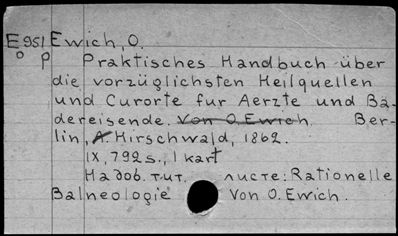 E951 Ewich, O.
o p Praktisches Handbuch über
die vorzüglichsten Heilquellen
und Curorte fur Aerzte und Ba-
dereisende. Von O. Ewich Ber-
lin, A. Hirschwald, 1862.
IX, 792 s., 1 kart
На доб. тит. листе: Rationelle
Balneologie Von O. Ewich.